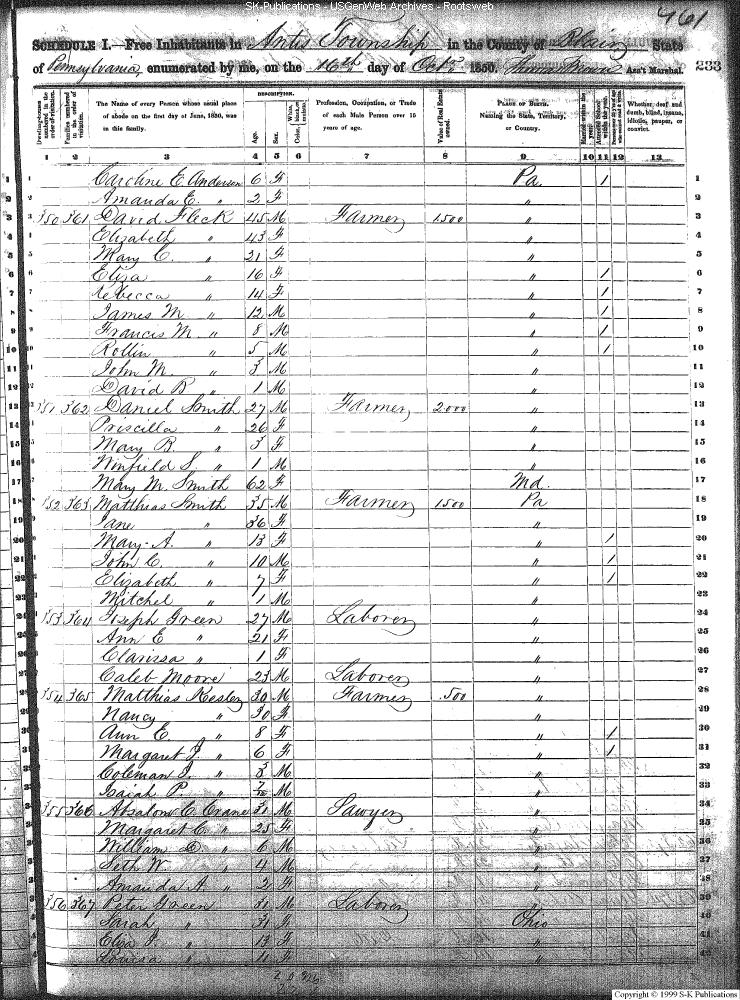 SK-Publications - USGenWeb Archives - Rootsweb
461
SCHEDULE I.—Free Inhabitants in Antis Township in the County of Blair State
of Pennsylvania, enumerated by me, on the 16th day of Oct. 1850. Ass't Marshal. 233
Dwelling-houses numbered in the order of visitation. Families numbered in the order of visitation. The Name of every Person whose usual place of abode on the first day of June, 1850, was in this family. DESCRIPTION. Age. Sex. Color, White, black, or mulatto. Profession, Occupation, or Trade of each Male Person over 15 years of age. Value of Real Estate owned. PLACE OF BIRTH. Naming the State, Territory, or Country. Married within the year. Attended School within the year. Whether deaf and dumb, blind, insane, idiotic, pauper, or convict.
1 2 3 4 5 6 7 8 9 10 11 12 13
1 Caroline E. Anderson 6 F Pa. 1 1
2 Amanda E. " 2 F " 2
3 350 361 David Fleck 45 M Farmer 1500 " 3
4 Elizabeth " 43 F " 4
5 Mary C. " 21 F " 5
6 Eliza " 16 F " 1 6
7 Rebecca " 14 F " 1 7
8 James M " 12 M " 1 8
9 Francis M. " 8 M " 1 9
10 Rollin " 5 M " 1 10
11 John M. " 3 M " 11
12 David B " 1 M " 12
13 351 362 Daniel Smith 27 M Farmer 2000 " 13
14 Priscilla " 26 F " 14
15 Mary B. " 3 F " 15
16 Winfield S. " 1 M " 16
17 Mary M. Smith 62 F Md. 17
18 352 363 Matthias Smith 35 M Farmer 1500 Pa 18
19 Jane " 36 F " 19
20 Mary A. " 13 F " 1 20
21 John C. " 10 M " 1 21
22 Elizabeth " 7 F " 1 22
23 Mitchel " 1 M " 23
24 353 364 Joseph Green 27 M Laborer " 24
25 Ann E " 21 F " 25
26 Clarissa " 1 F " 26
27 Caleb Moore 23 M Laborer " 27
28 354 365 Matthias Kesler 30 M Farmer 500 " 28
29 Nancy " 30 F " 29
30 Ann E. " 8 F " 1 30
31 Margaret J. " 6 F " 1 31
32 Coleman J. " 3 M " 32
33 Isaiah P. " M " 33
34 355 366 Absalom C. Crane 31 M Sawyer " 34
35 Margaret C. " 25 F " 35
36 William D. " 6 M " 36
37 Seth W. " 4 M " 37
38 Amanda A. " 2 F " 38
39 356 367 Peter Green 31 M Laborer " 39
40 Sarah " 31 F Ohio 40
41 Eliza J. " 13 F " 41
42 Louisa " 11 F " 42
Copyright © 1999 S-K Publications